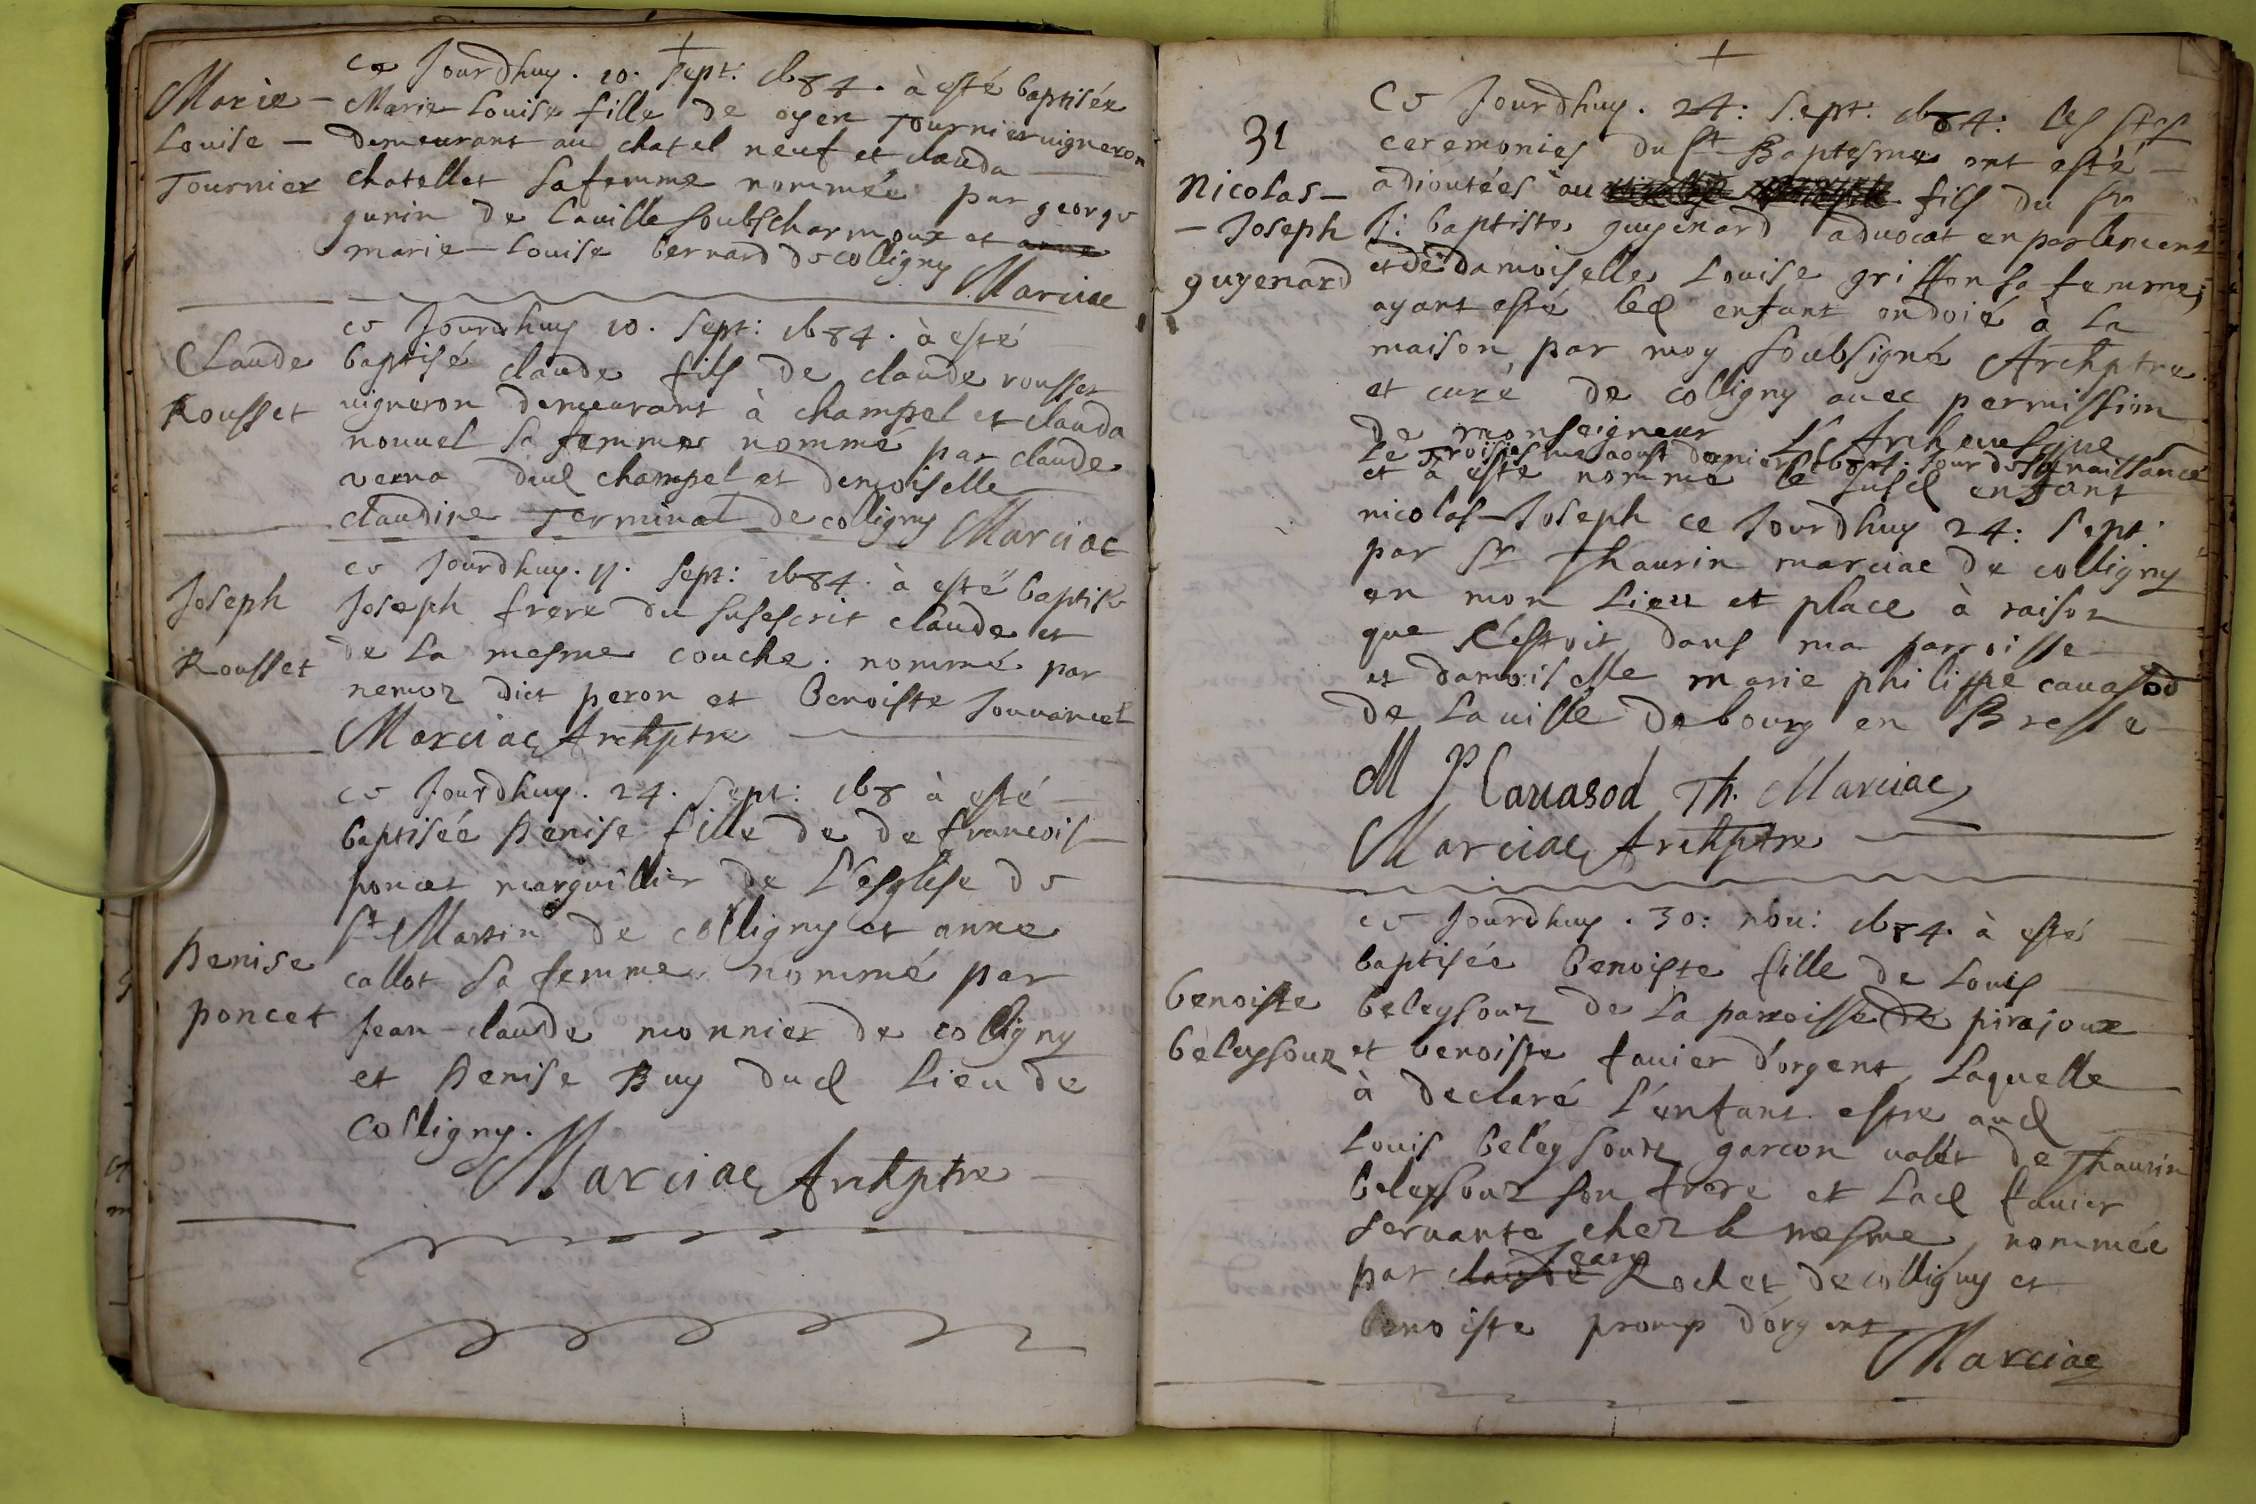 +
Marie –
Louise –
Tournier
ce Jourdhuy. 10. sept: 1684. à esté baptisée
Marie-Louise fille de oyen Tournier uigneron
demeurant au chatel neuf et clauda
chatellet sa femme nommée par george
gurin de lauille soubscharmoux et anne
marie-louise bernard de colligny
Marciac
Claude
Rousset
ce Jourdhuy 10. sept: 1684. à esté
baptisé claude fils de claude rousset
uigneron demeurant à champel et clauda
nouuel sa femme nommé par claude
verna dud champel et demoiselle
claudine Terminal de colligny
Marciac
Joseph
Rousset
ce Jourdhuy. 11. sept: 1684. à esté baptise
Joseph frere du susescrit claude et
de la mesme couche. nommé par
nemoz dict peron et Benoiste Jouuancet
Marciac Archptre
Denise
poncet
ce Jourdhuy. 24. sept: 168 à esté
baptisée Denise fille de de francois
poncet marguillier de L'esglise de
St Martin de colligny et anne
callot sa femme nommé par
Jean-claude monnier de colligny
et Denise Buy dud Lieu de
colligny.
Marciac Archptre
+
31
Nicolas –
– Joseph
guyenard
Ce Jourdhuy. 24: sept: 1684: les stes
ceremonies du St Baptesme ont esté
adioutées au fils du sr
J: baptiste guyenard aduocat en parlement
et de damoiselle Louise griffon sa femme;
ayant esté led enfant ondoié à la
maison par moy soubsigné Archptre
et curé de colligny auec permission
de monseigneur L'Archeuesque
le Troisiesme aoust dernier 1684. Jour de sa naissance
et à esté nommé le susd enfant
nicolas-Joseph ce Jourdhuy 24: sept:
par Sr Thaurin marciac de colligny
en mon Lieu et place à raison
que c'estoit dans ma parroisse
et damoiselle marie philippe cauasod
de Lauille debourg en Bresse
M P Cauasod Th. Marciac
Marciac Archptre
Benoiste
beleysouz
ce Jourdhuy. 30: nou: 1684. à esté
baptisée Benoiste fille de Louis
beleysouz de La paroisse de pirajoux
et benoiste fauier d'orgent, Laquelle
à declaré L'enfant estre aud
Louis beleysouz garcon ualet de Thaurin
beleysouz son frere et Lad fauier
seruante chez le mesme, nommée
par claude Jean Rochet de colligny et
benoiste promp d'orgent
Marciac